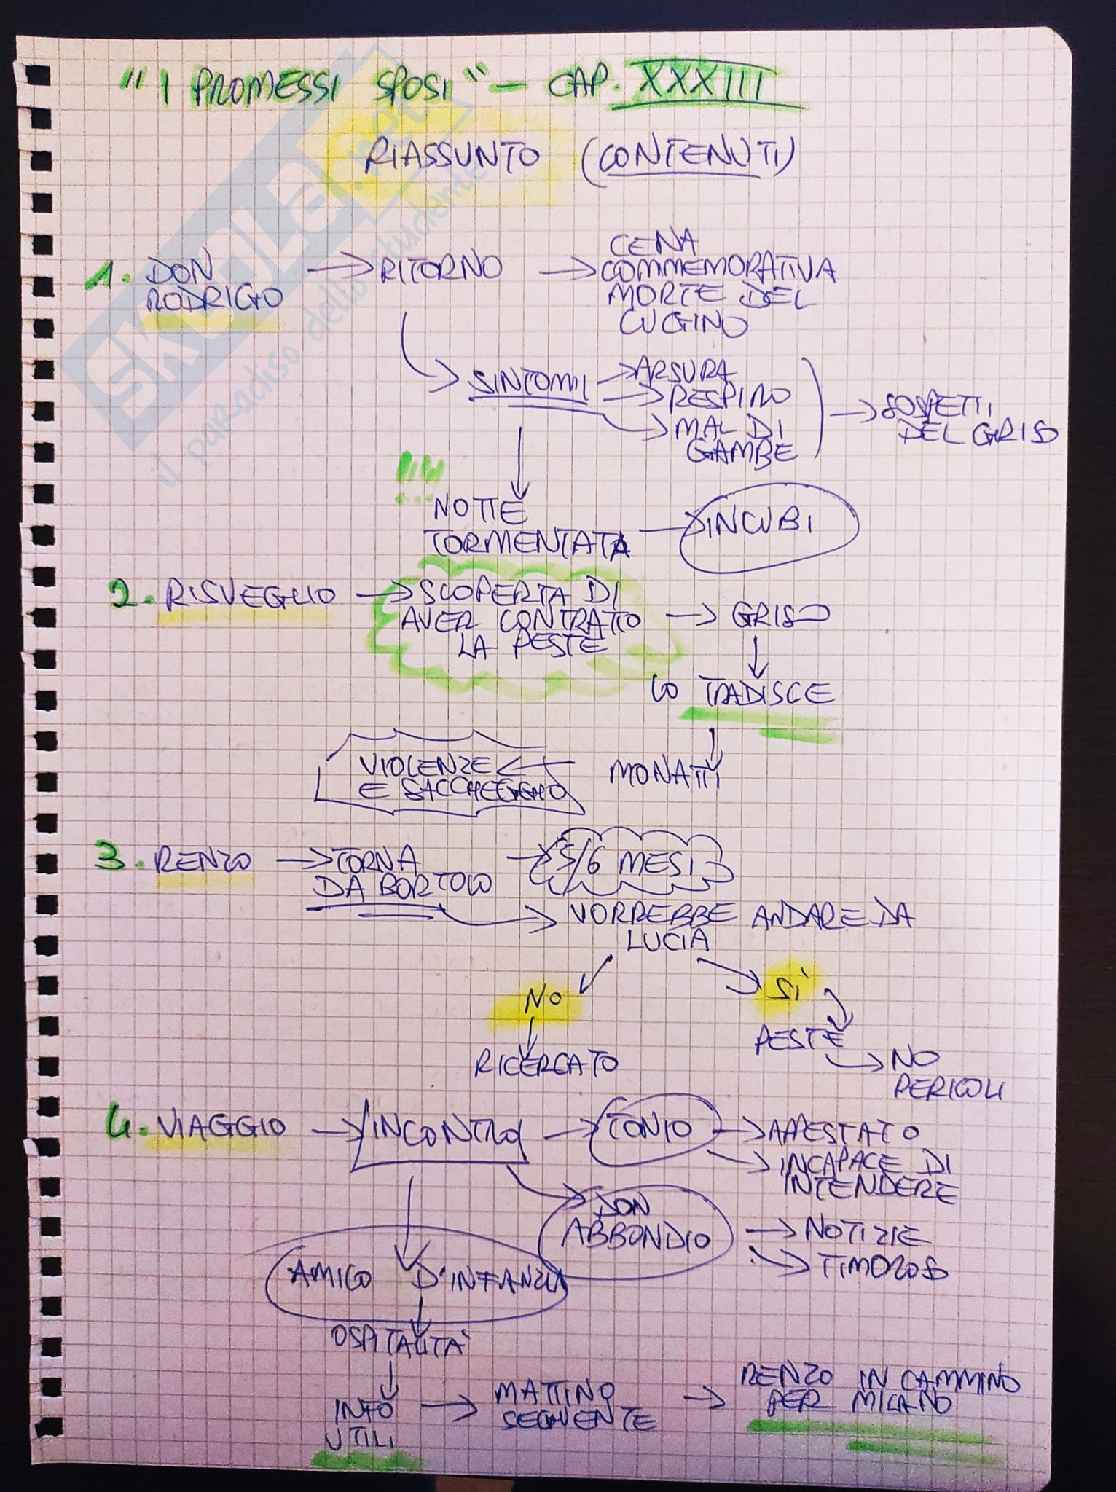 "I PROMESSI SPOSI" - CAP. XXXIII
RIASSUNTO (CONTENUTI)
1. DON RODRIGO → RITORNO → CENA
COMMEMORATIVA
MORTE DEL
CUGINO
SINTOMI → ARSURA
→ RESPIRO
→ MAL DI
GAMBE
→ SOSPETTI
DEL GRISO
!!!
NOTTE
TORMENTATA → INCUBI
2. RISVEGLIO → SCOPERTA DI
AVER CONTRATTO
LA PESTE
→ GRISO
LO TRADISCE
MONATTI
VIOLENZE
E SACCHEGGIO
3. RENZO → TORNA
DA BORTOLO
→ 5/6 MESI
→ VORREBBE ANDARE DA
LUCIA
NO
RICERCATO
SI'
PESTE
→ NO
PERICOLI
4. VIAGGIO → INCONTRO → TONIO → APPESTATO
→ INCAPACE DI
INTENDERE
DON
ABBONDIO → NOTIZIE
→ TIMOROSO
AMICO D'INFANZIA
OSPITALITA'
INFO
UTILI
→ MATTINO
SEGUENTE
→ RENZO IN CAMMINO
PER MILANO
SKUOLA.net
il paradiso dello studente